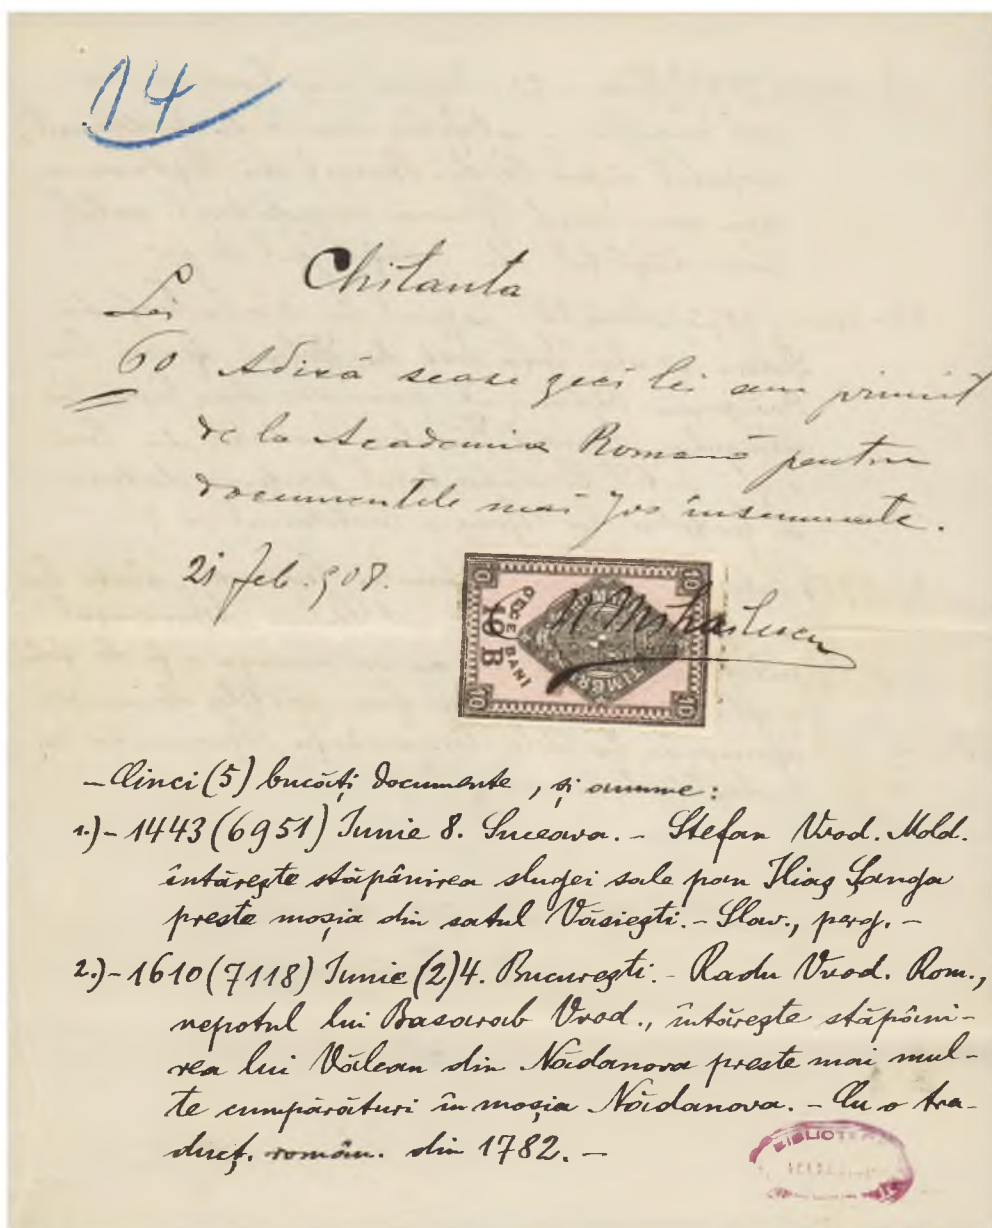 14
Chitanta
Lei
60 Adică sease zeci lei am primit
de la Academia Română pentru
documentele mai jos însemnate.
21 Feb. 908.
10 10
ZECE BANI
10 B
TIMBRU
10 10
Mihailescu
– Cinci (5) bucăți documente, și anume:
1.)– 1443 (6951) Iunie 8. Suceava. – Stefan Vvod. Mold.
întărește stăpânirea slugei sale pan Iliaș Șanga
preste moșia din satul Văsiești. – Slav., perg. –
2.)– 1610 (7118) Iunie (2)4. București. – Radu Vvod. Rom.,
nepotul lui Basarab Vvod., întărește stăpâni-
rea lui Vâlcan din Nădanova preste mai mul-
te cumpărături în moșia Nădanova. – Cu o tra-
ducț. român. din 1782. –